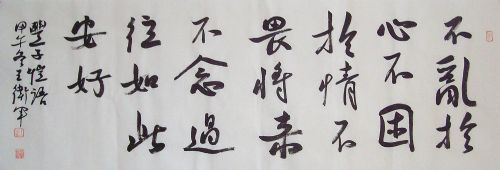 不亂於
心不困
於情不
畏將來
不念過
往如此
安好
豐子愷語
甲午 王衛軍